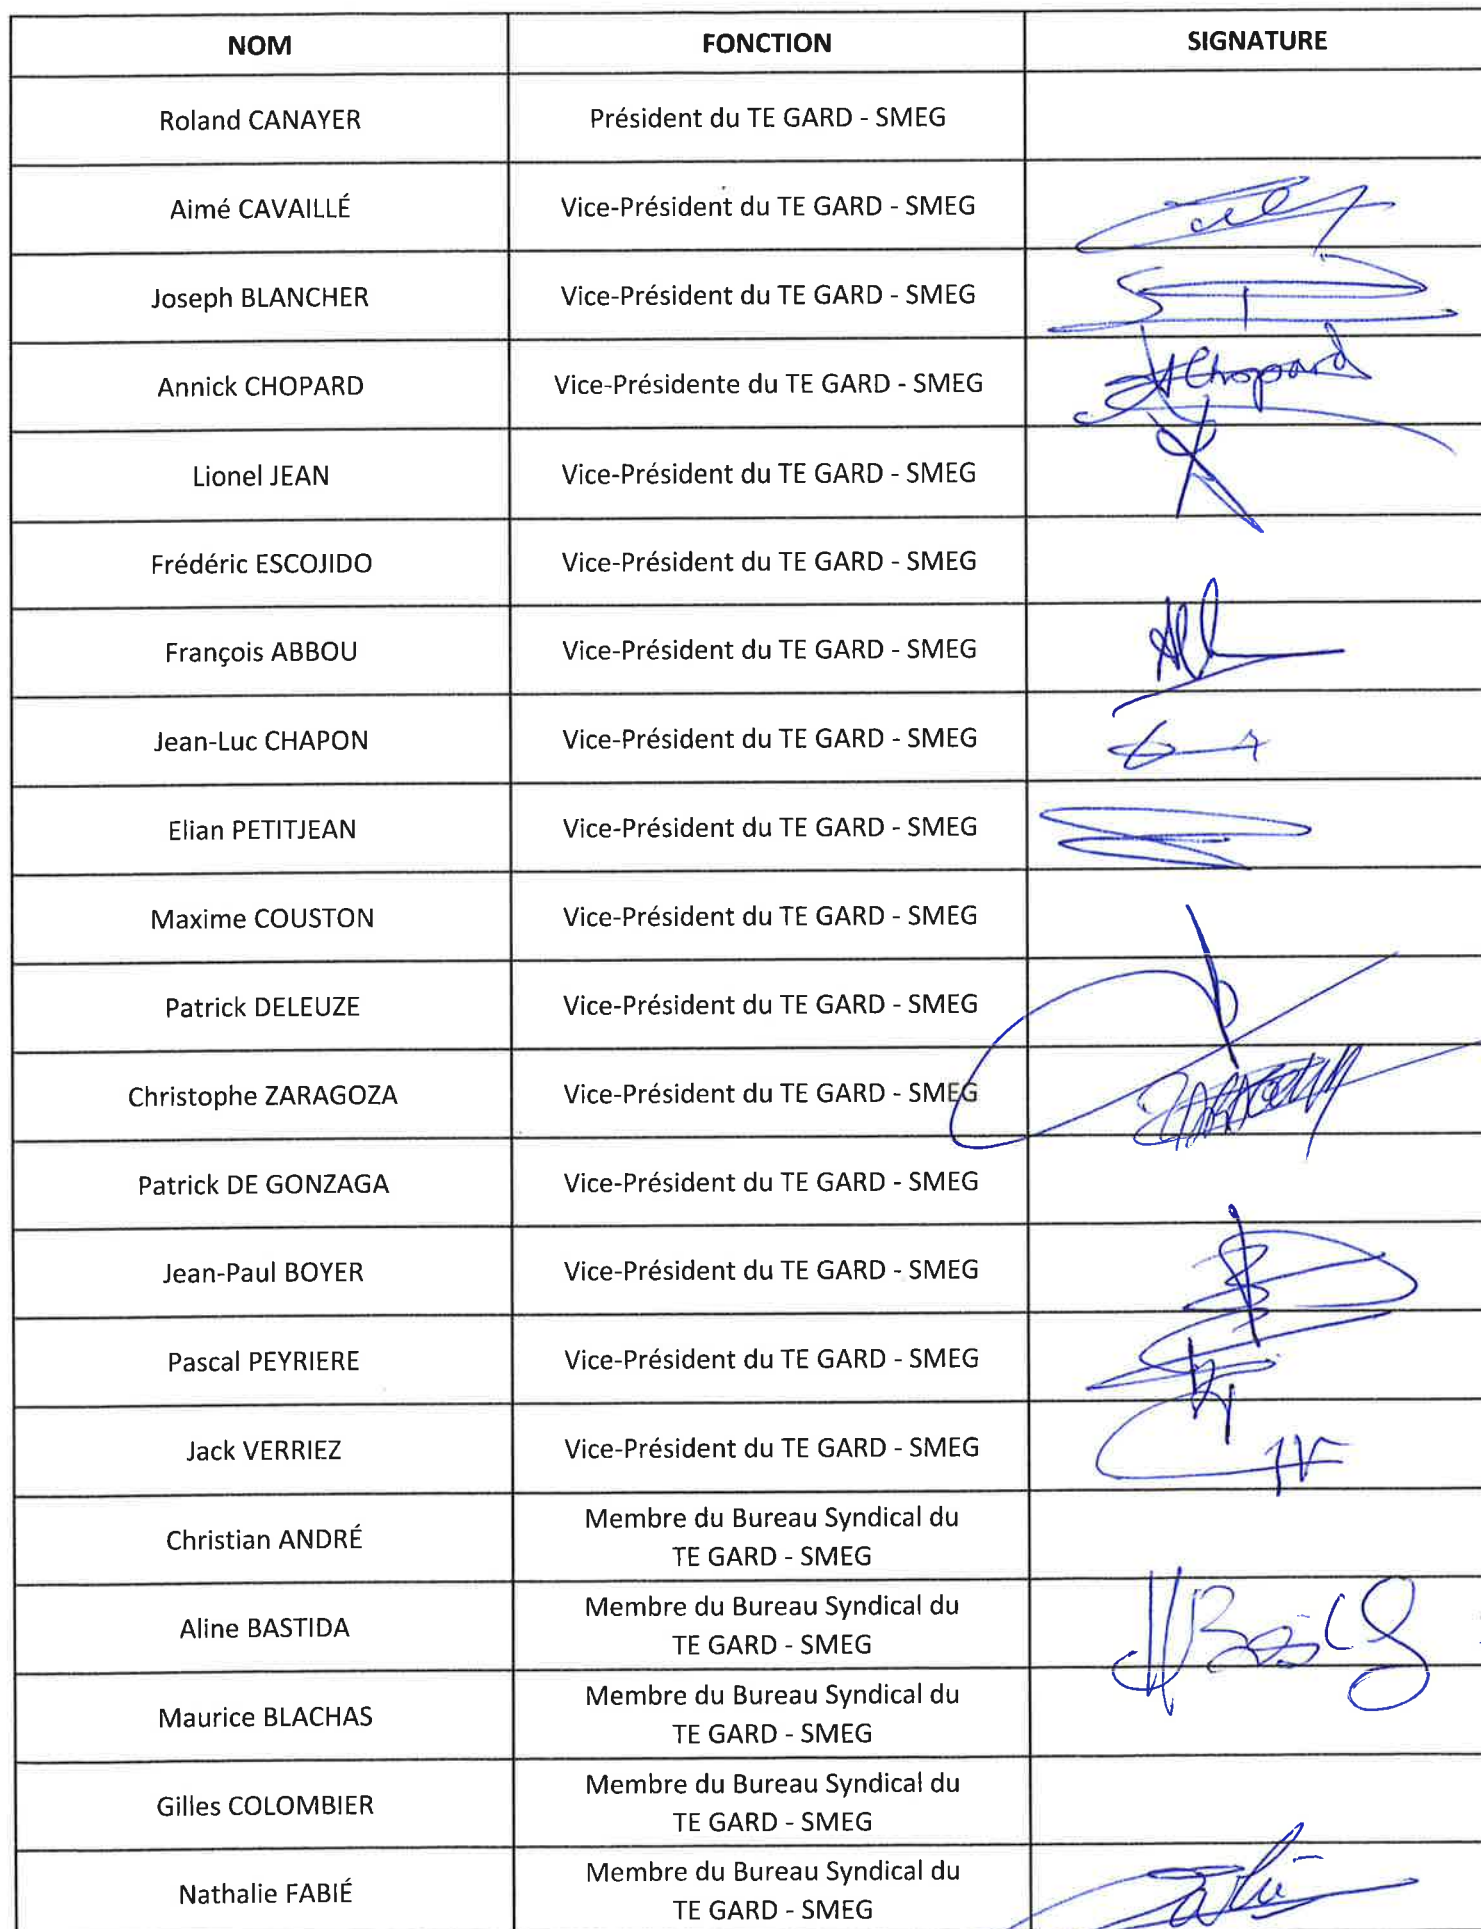 NOM FONCTION SIGNATURE
Roland CANAYER Président du TE GARD - SMEG
Aimé CAVAILLÉ Vice-Président du TE GARD - SMEG
Joseph BLANCHER Vice-Président du TE GARD - SMEG
Annick CHOPARD Vice-Présidente du TE GARD - SMEG Chopard
Lionel JEAN Vice-Président du TE GARD - SMEG
Frédéric ESCOJIDO Vice-Président du TE GARD - SMEG
François ABBOU Vice-Président du TE GARD - SMEG
Jean-Luc CHAPON Vice-Président du TE GARD - SMEG
Elian PETITJEAN Vice-Président du TE GARD - SMEG
Maxime COUSTON Vice-Président du TE GARD - SMEG
Patrick DELEUZE Vice-Président du TE GARD - SMEG
Christophe ZARAGOZA Vice-Président du TE GARD - SMEG
Patrick DE GONZAGA Vice-Président du TE GARD - SMEG
Jean-Paul BOYER Vice-Président du TE GARD - SMEG
Pascal PEYRIERE Vice-Président du TE GARD - SMEG
Jack VERRIEZ Vice-Président du TE GARD - SMEG
Christian ANDRÉ Membre du Bureau Syndical du
TE GARD - SMEG
Aline BASTIDA Membre du Bureau Syndical du
TE GARD - SMEG
Maurice BLACHAS Membre du Bureau Syndical du
TE GARD - SMEG
Gilles COLOMBIER Membre du Bureau Syndical du
TE GARD - SMEG
Nathalie FABIÉ Membre du Bureau Syndical du
TE GARD - SMEG